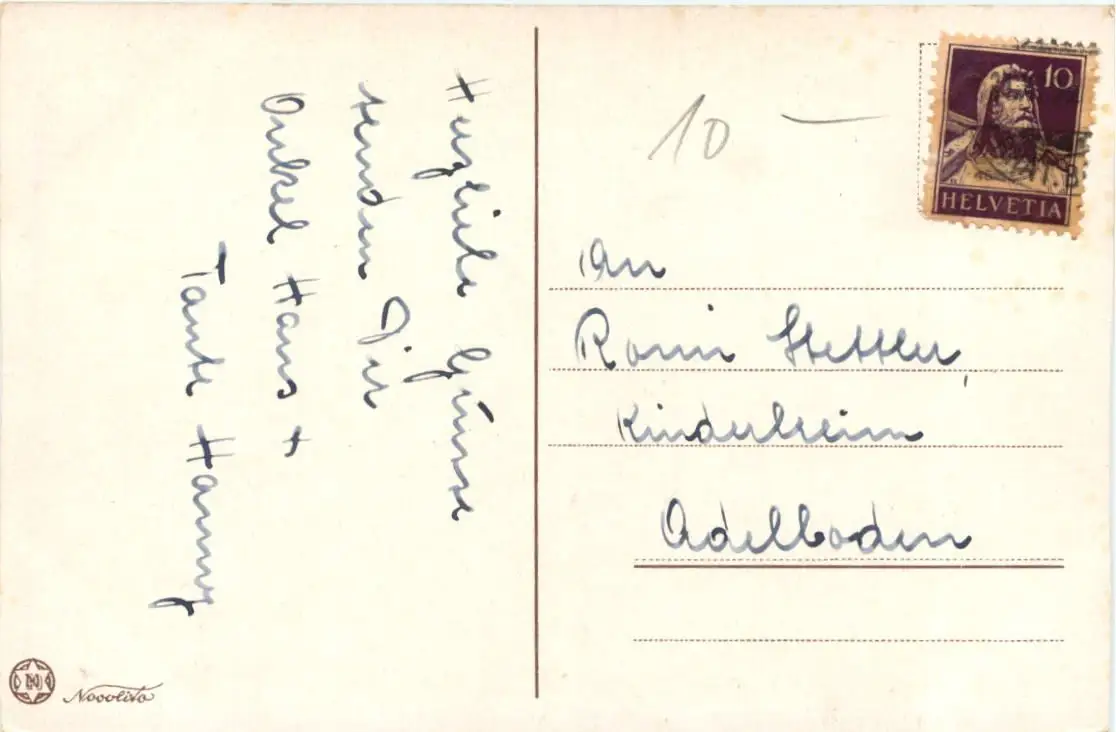 Herzliche Grüsse
senden Dir
Onkel Hans +
Tante Hanny
10 —
10
HELVETIA
An
Romi Stettler,
Kinderheim
Adelboden
N
Novolito